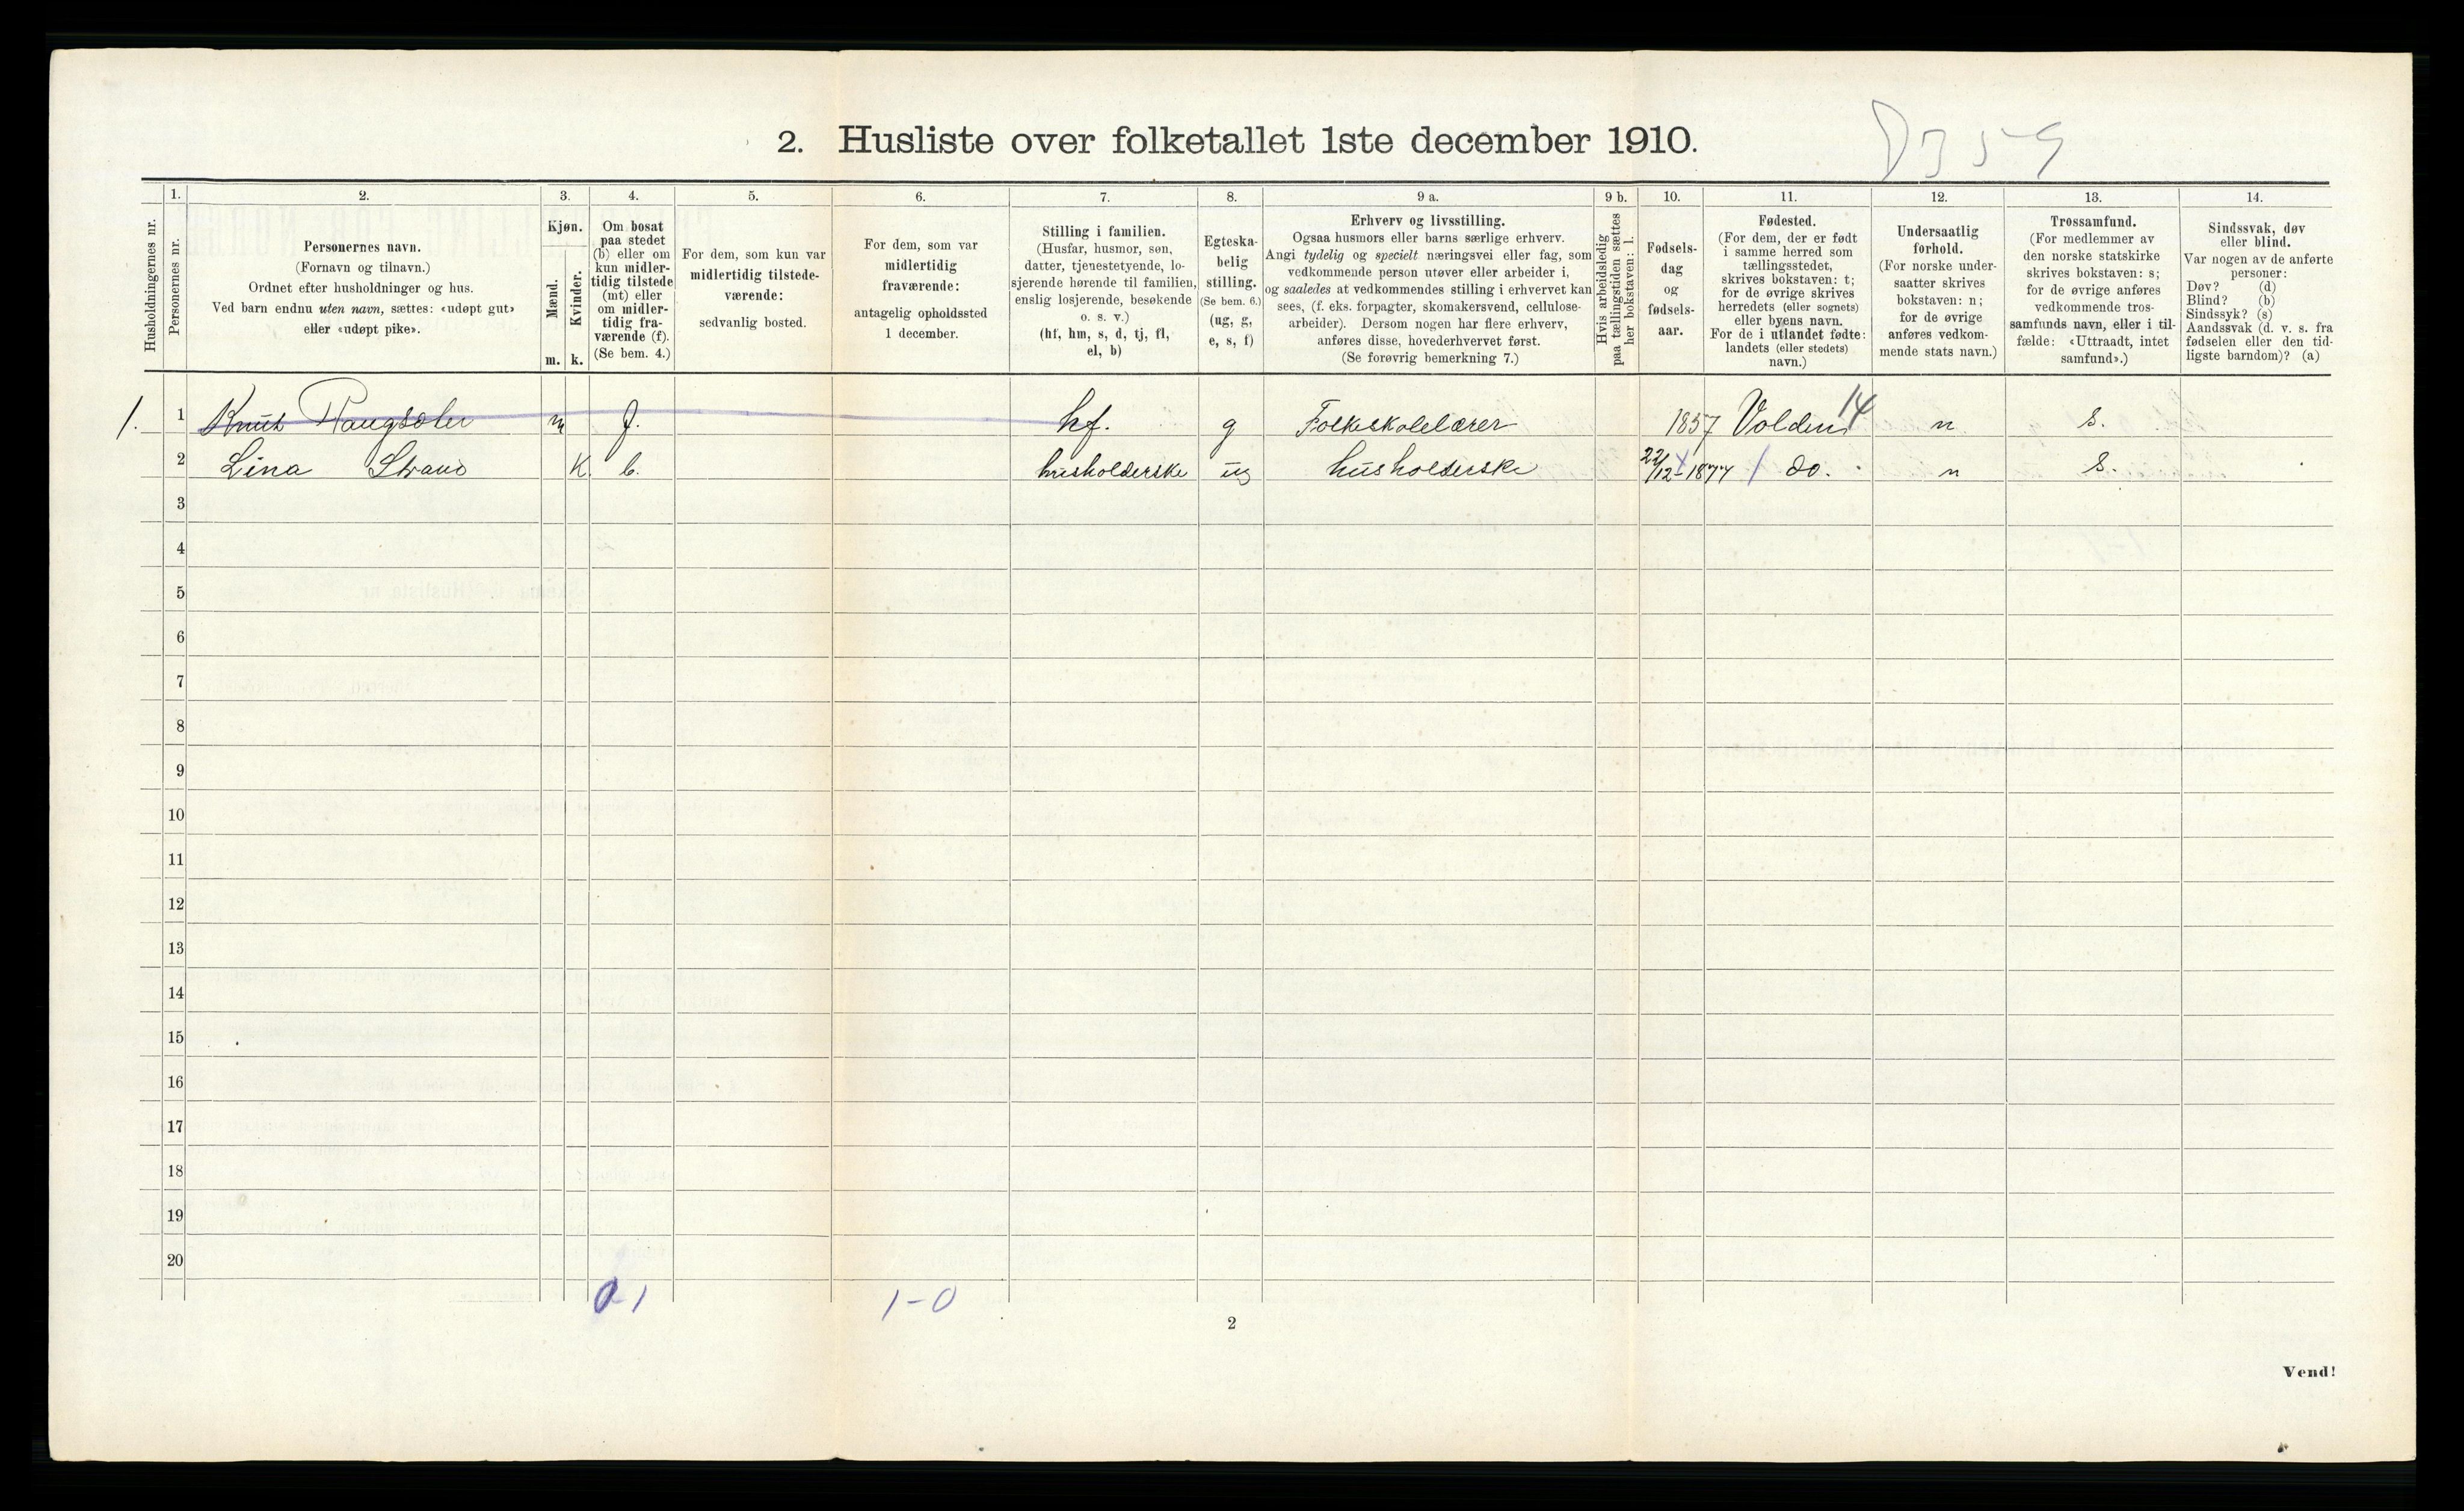 2. Husliste over folketallet 1ste december 1910.
Husholdningernes nr.
1.
Personernes nr.
2.
Personernes navn.
(Fornavn og tilnavn.)
Ordnet efter husholdninger og hus.
Ved barn endnu uten navn, sættes: «udøpt gut»
eller «udøpt pike».
3.
Kjøn.
Mænd.
Kvinder.
m. k.
4.
Om bosat
paa stedet
(b) eller om
kun midler-
tidig tilstede
(mt) eller
om midler-
tidig fra-
værende (f).
(Se bem. 4.)
5.
For dem, som kun var
midlertidig tilstede-
værende:
sedvanlig bosted.
6.
For dem, som var
midlertidig
fraværende:
antagelig opholdssted
1 december.
7.
Stilling i familien.
(Husfar, husmor, søn,
datter, tjenestetyende, lo-
sjerende hørende til familien,
enslig losjerende, besøkende
o. s. v.)
(hf, hm, s, d, tj, fl,
el, b)
8.
Egteska-
belig
stilling.
(Se bem. 6.)
(ug, g,
e, s, f)
9 a.
Erhverv og livsstilling.
Ogsaa husmors eller barns særlige erhverv.
Angi tydelig og specielt næringsvei eller fag, som
vedkommende person utøver eller arbeider i,
og saaledes at vedkommendes stilling i erhvervet kan
sees, (f. eks. forpagter, skomakersvend, cellulose-
arbeider). Dersom nogen har flere erhverv,
anføres disse, hovederhvervet først.
(Se forøvrig bemerkning 7.)
9 b.
Hvis arbeidsledig
paa tællingstiden sættes
her bokstaven: l.
10.
Fødsels-
dag
og
fødsels-
aar.
11.
Fødested.
(For dem, der er født
i samme herred som
tællingsstedet,
skrives bokstaven: t;
for de øvrige skrives
herredets (eller sognets)
eller byens navn.
For de i utlandet fødte:
landets (eller stedets)
navn.)
12.
Undersaatlig
forhold.
(For norske under-
saatter skrives
bokstaven: n;
for de øvrige
anføres vedkom-
mende stats navn.)
13.
Trossamfund.
(For medlemmer av
den norske statskirke
skrives bokstaven: s;
for de øvrige anføres
vedkommende tros-
samfunds navn, eller i til-
fælde: «Uttraadt, intet
samfund».)
14.
Sindssvak, døv
eller blind.
Var nogen av de anførte
personer:
Døv? (d)
Blind? (b)
Sindssyk? (s)
Aandssvak (d. v. s. fra
fødselen eller den tid-
ligste barndom)? (a)
1. 1 Knut m f. hf. g Folkeskolelærer 1857 Volden 14 n s.
2 Lina Strand K. b. husholderske ug husholderske 22/12-1877 do. n s.
3
4
5
6
7
8
9
10
11
12
13
14
15
16
17
18
19
20
0-1 1-0
2
Vend!